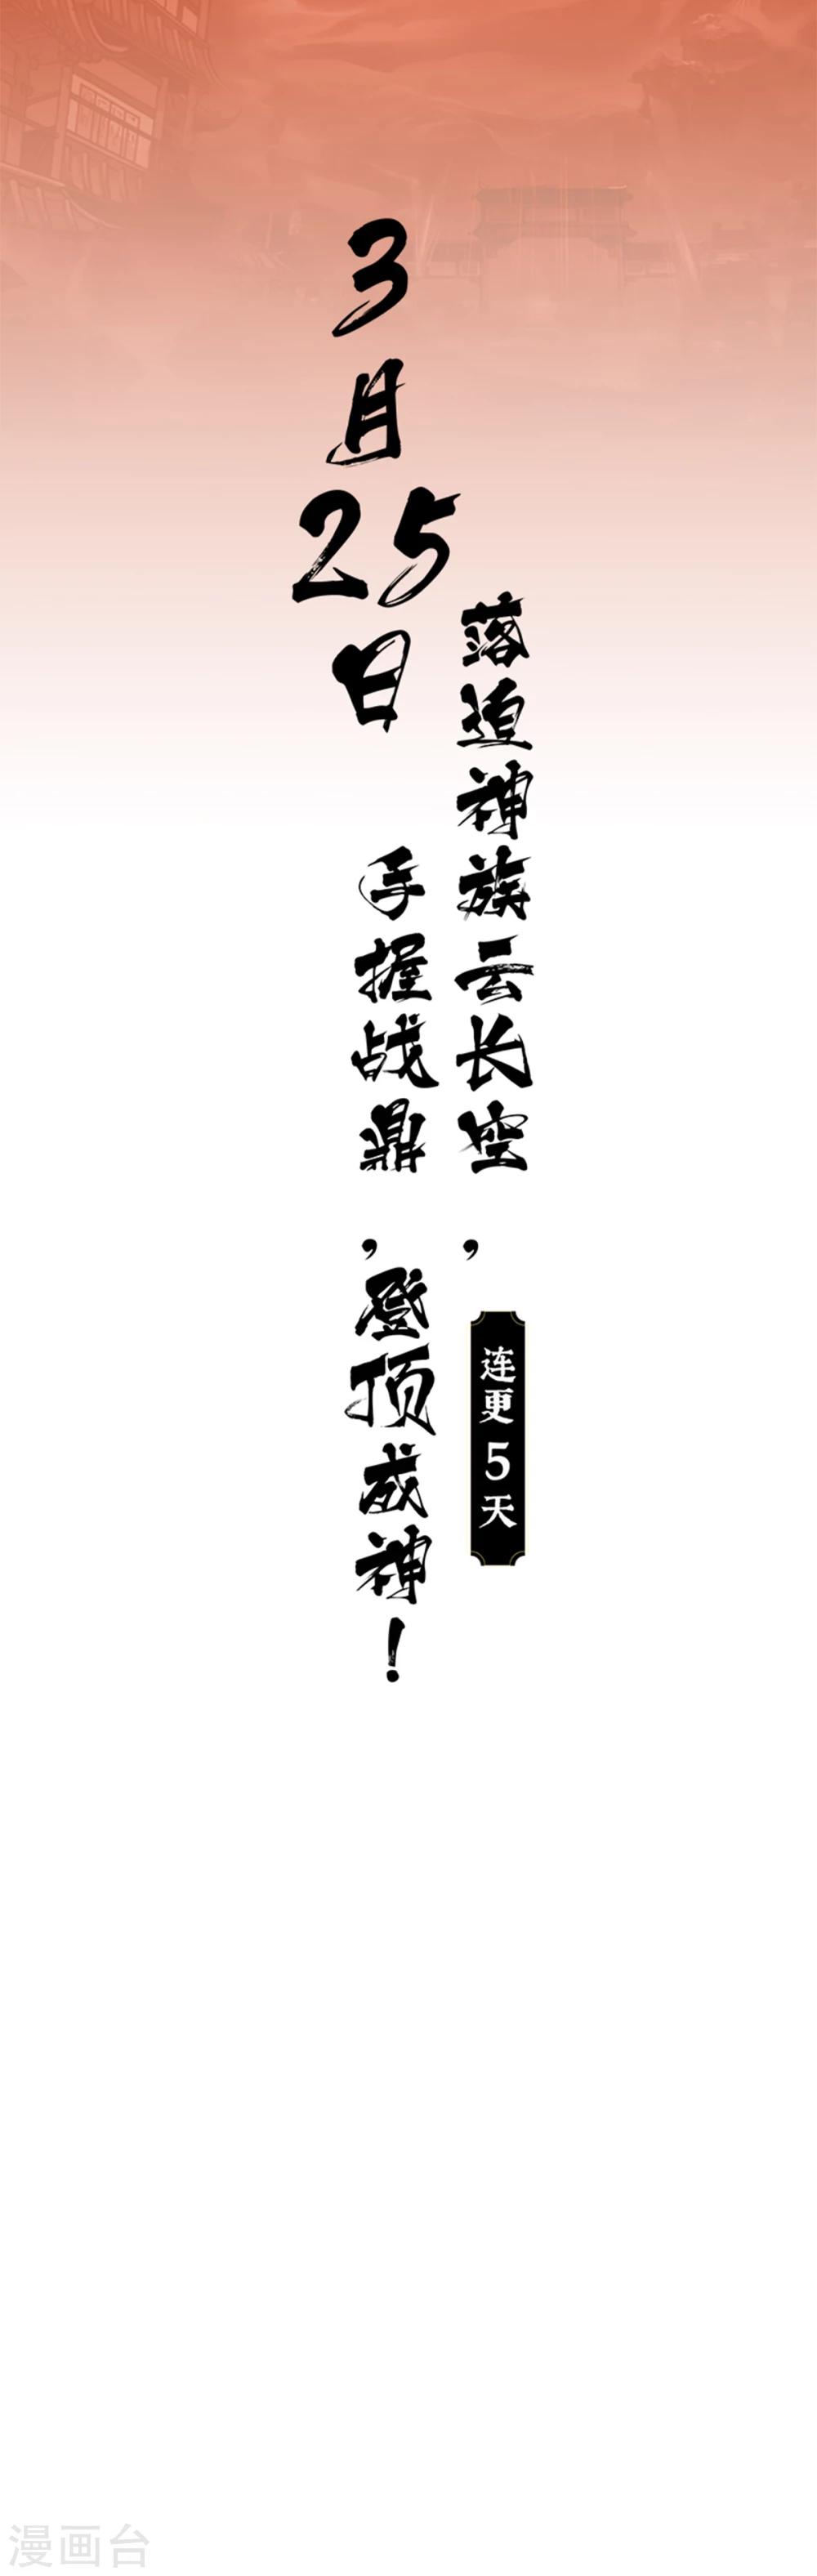 3月25日
落迫神族云长空，
手握战鼎，登顶成神！
连更5天
漫画台